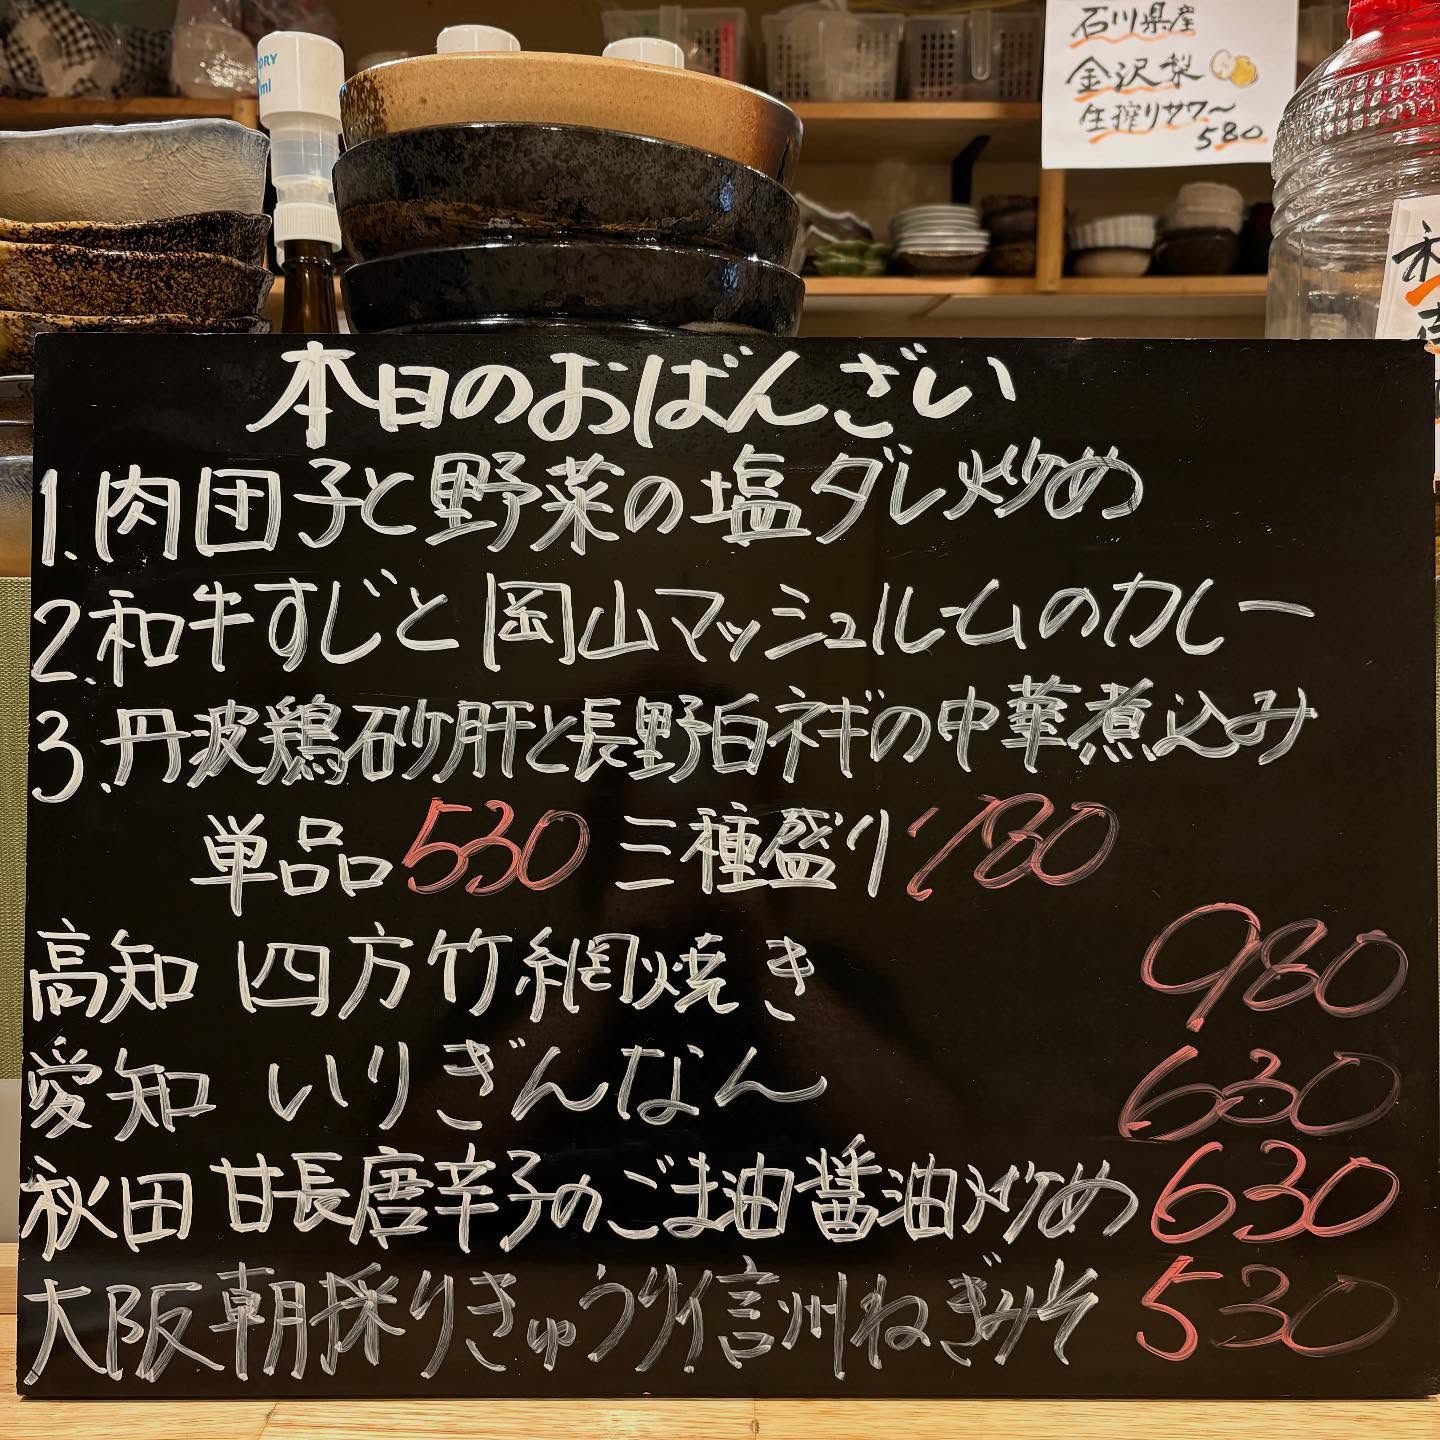 石川県産
金沢梨
生搾りサワー
580
本日のおばんざい
1.肉団子と野菜の塩ダレ炒め
2.和牛すじと岡山マッシュルームのカレー
3.丹波鶏砂肝と長野白ネギの中華煮込み
単品530 三種盛り780
高知 四方竹網焼き 980
愛知 いりぎんなん 630
秋田 甘長唐辛子のごま油醤油炒め 630
大阪 朝採りきゅうり信州ねぎみそ 530